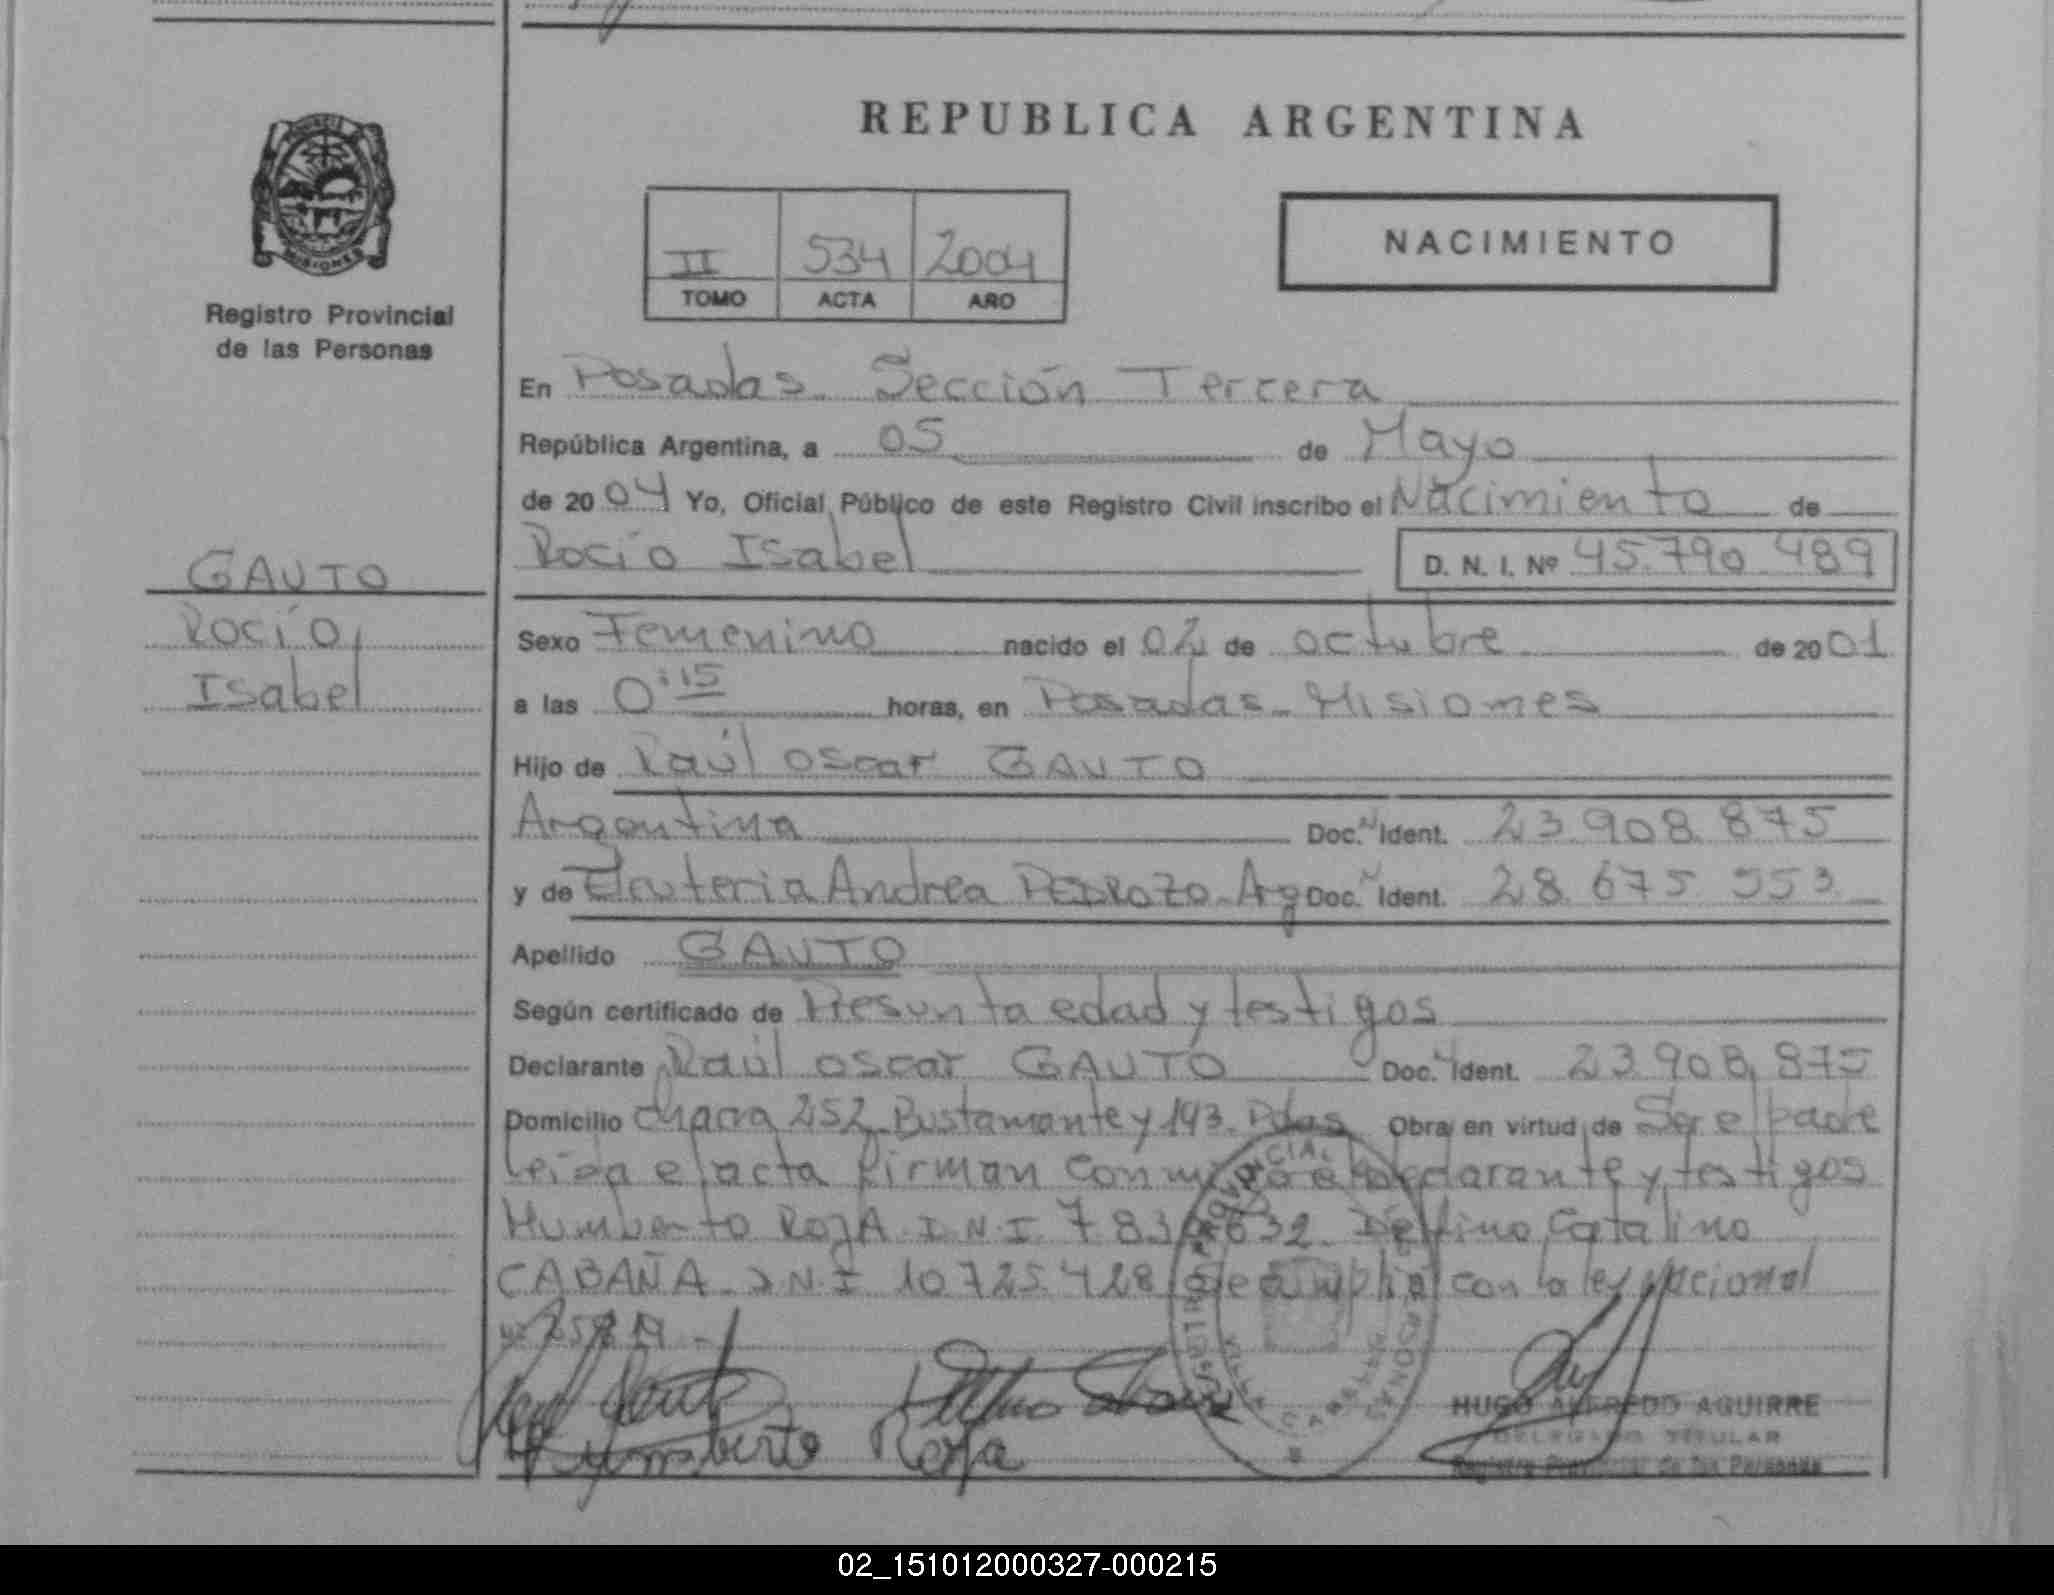 REPUBLICA ARGENTINA
MISIONES
Registro Provincial
de las Personas
II 534 2004
TOMO ACTA AÑO
NACIMIENTO
En Posadas Sección Tercera
República Argentina, a 05 de Mayo
de 2004 Yo, Oficial Público de este Registro Civil inscribo el Nacimiento de
Rocío Isabel D. N. I. Nº 45.790.489
GAUTO
Rocío
Isabel
Sexo Femenino nacido el 02 de octubre de 2001
a las 0:15 horas, en Posadas - Misiones
Hijo de Raúl oscar GAUTO
Argentina Doc. N Ident. 23.908.875
y de Eleuteria Andrea PEDROZO - Arg Doc. N Ident. 28.675.553
Apellido GAUTO
Según certificado de Presunta edad y testigos
Declarante Raúl oscar GAUTO Doc. N Ident. 23.908.875
Domicilio chacra 252 Bustamante y 193 - Pdas Obra en virtud de Ser el padre
leida el acta firman conmigo el declarante y testigos
Humberto ROJA D.N.I. Delfino Catalino
CABAÑA D.N.I 10.725.428 con la ley nacional
Humberto Roja
HUGO ALFREDO AGUIRRE
DELEGADO TITULAR
Registro Provincial de las Personas
02_151012000327-000215